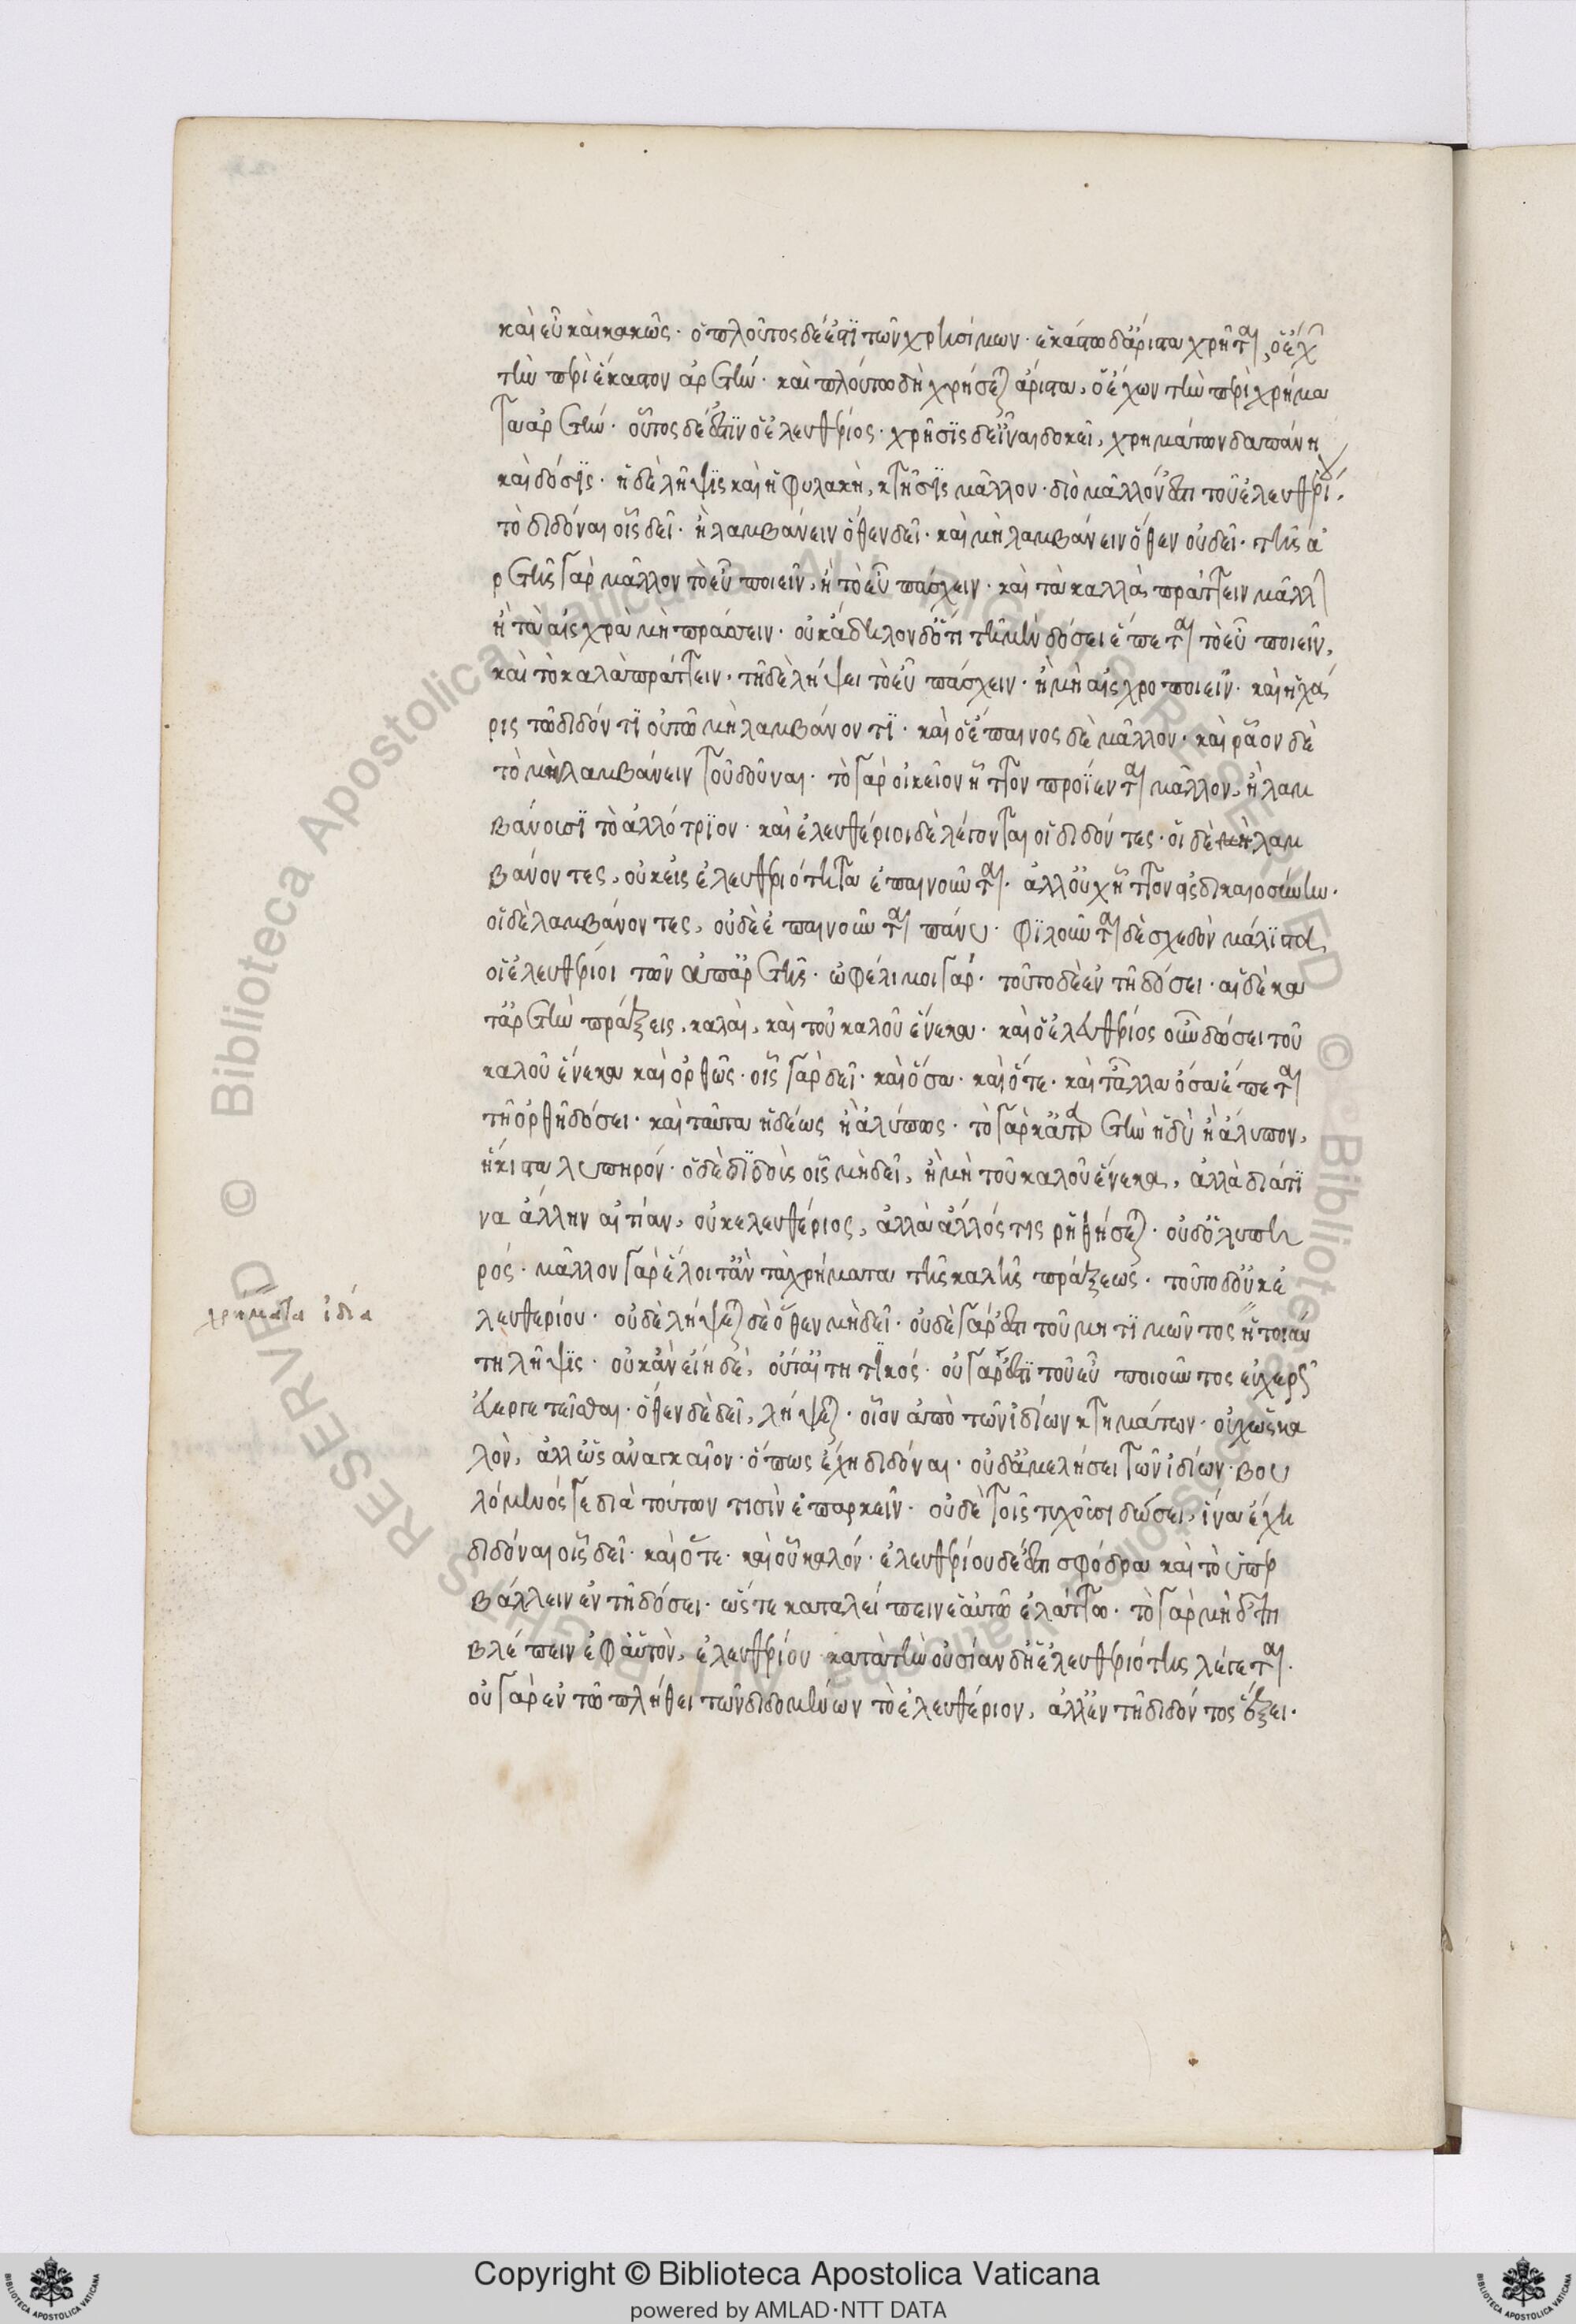 καὶ εὖ καὶ κακῶς· ὁ πλοῦτος δέ ἐστϊ τῶν χρησίμων· ἑκάστω δ' ἄριστα χρῆται, ὁ ἔχων
τὴν περὶ ἕκαστον ἀρετήν· καὶ πλούτω δὴ χρήσεται ἄριστα, ὁ ἔχων τὴν περὶ χρήμα
τα ἀρετήν· οὗτος δέ ἐστϊν ὁ ἐλευθέριος· χρῆσϊς δ' εἶναι δοκεῖ, χρημάτων δαπάνη
καὶ δόσϊς· ἡ δὲ λῆψϊς καὶ ἡ φυλακὴ, κτῆσϊς μᾶλλον· διὸ μᾶλλόν ἐστι τοῦ ἐλευθερίου
τὸ διδόναι οἷς δεῖ· ἢ λαμβάνειν ὅθεν δεῖ· καὶ μὴ λαμβάνειν ὅθεν οὐ δεῖ· τῆς ἀ
ρετῆς γὰρ μᾶλλον τὸ εὖ ποιεῖν, ἢ τὸ εὖ πάσχειν· καὶ τὰ καλλὰ πράττειν μᾶλλον
ἢ τὰ αἰσχρὰ μὴ πράσσειν· οὐκ ἄδηλον δ' ὅτι τῆ μὲν δόσει ἕπεται τὸ εὖ ποιεῖν,
καὶ τὸ καλὰ πράττειν· τῆ δὲ λήψει τὸ εὖ πάσχειν· ἢ μὴ αἰσχροποιεῖν· καὶ ἡ χά
ρις τῶ διδόντϊ οὐ τῶ μὴ λαμβάνοντϊ· καὶ ὁ ἔπαινος δὲ μᾶλλον· καὶ ρᾶον δὲ
τὸ μὴ λαμβάνειν τοῦ δοῦναι· τὸ γὰρ οἰκεῖον ἧττον προΐενται μᾶλλον, ἢ λαμ
βάνουσϊ τὸ ἀλλότρϊον· καὶ ἐλευθέριοι δὲ λέγονται οἱ διδόντες· οἱ δὲ μὴ λαμ
βάνοντες, οὐκ εἰς ἐλευθεριότητα ἐπαινοῦνται· ἀλλ' οὐχ ἧττον εἰς δικαιοσύνην·
οἱ δὲ λαμβάνοντες, οὐδὲ ἐπαινοῦνται πάνυ· φϊλοῦνται δὲ σχεδὸν μάλϊστα
οἱ ἐλευθέριοι τῶν ἀπ' ἀρετῆς· ὠφέλιμοι γάρ· τοῦτο δὲ ἐν τῆ δόσει· αἱ δὲ κα
τ' ἀρετὴν πράξεις, καλαὶ, καὶ τοῦ καλοῦ ἕνεκα· καὶ ὁ ἐλευθέριος οὖν δώσει τοῦ
καλοῦ ἕνεκα καὶ ὀρθῶς· οἷς γὰρ δεῖ· καὶ ὅσα· καὶ ὅτε· καὶ τἆλλα ὅσα ἕπεται
τῆ ὀρθῆ δόσει· καὶ ταῦτα ἡδέως ἢ ἀλύπως· τὸ γὰρ κατ' ἀρετὴν ἡδὺ ἢ ἄλυπον,
ἥκιστα λυπηρόν· ὁ δὲ δϊδοὺς οἷς μὴ δεῖ, ἢ μὴ τοῦ καλοῦ ἕνεκα, ἀλλὰ διά τϊ
να ἄλλην αἰτίαν, οὐκ ἐλευθέριος, ἀλλὰ ἄλλός τις ρηθήσεται· οὐδ' ὁ λυπη
ρός· μᾶλλον γὰρ ἕλοιτ' ἂν τὰ χρήματα τῆς καλῆς πράξεως· τοῦτο δ' οὐκ ἐ
χρήματα ἰδία
λευθερίου· οὐδὲ λήψεται δὲ ὅθεν μὴ δεῖ· οὐδὲ γάρ ἐστι τοῦ μὴ τϊμῶντος ἡ τοιαύ
τη λῆψϊς· οὐκ ἂν εἴη δὲ, οὐδ' αἰτητϊκός· οὐ γάρ ἐστϊ τοῦ εὖ ποιοῦντος εὐχερῶς
εὐεργετεῖσθαι· ὅθεν δὲ δεῖ, λήψεται· οἷον ἀπὸ τῶν ἰδίων κτημάτων· οὐχ ὡς κα
λὸν, ἀλλ' ὡς ἀναγκαῖον· ὅπως ἔχη διδόναι· οὐδ' ἀμελήσει τῶν ἰδίων· βου
λόμενός γε διὰ τούτων τισὶν ἐπαρκεῖν· οὐδὲ τοῖς τυχοῦσι δώσει, ἵνα ἔχη
διδόναι οἷς δεῖ· καὶ ὅτε· καὶ οὗ καλόν· ἐλευθερίου δέ ἐστι σφόδρα καὶ τὸ ὑπερ
βάλλειν ἐν τῆ δόσει· ὥστε καταλείπειν ἑαυτῶ ἐλάττω· τὸ γὰρ μὴ
βλέπειν ἐφ' αὑτὸν, ἐλευθερίου κατὰ τὴν οὐσίαν δ' ἡ ἐλευθεριότης λέγεται·
οὐ γὰρ ἐν τῶ πλήθει τῶν διδομένων τὸ ἐλευθέριον, ἀλλ' ἐν τῆ διδόντος ἕξει·
Copyright © Biblioteca Apostolica Vaticana
powered by AMLAD·NTT DATA